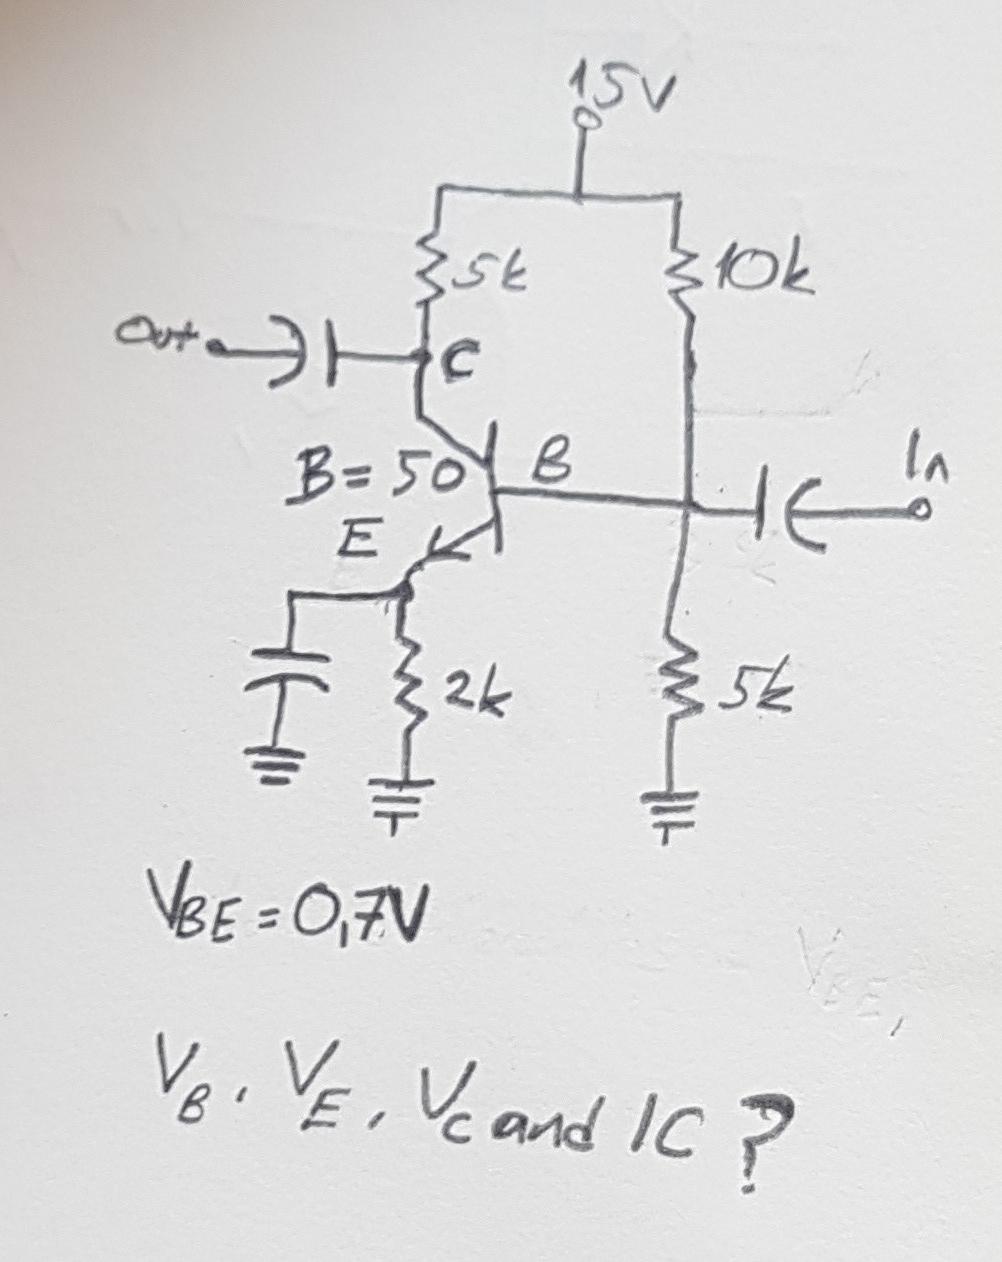 15V
5k
10k
Out
C
B = 50
B
In
E
2k
5k
VBE = 0,7V
VBE,
VB, VE, VC and IC ?